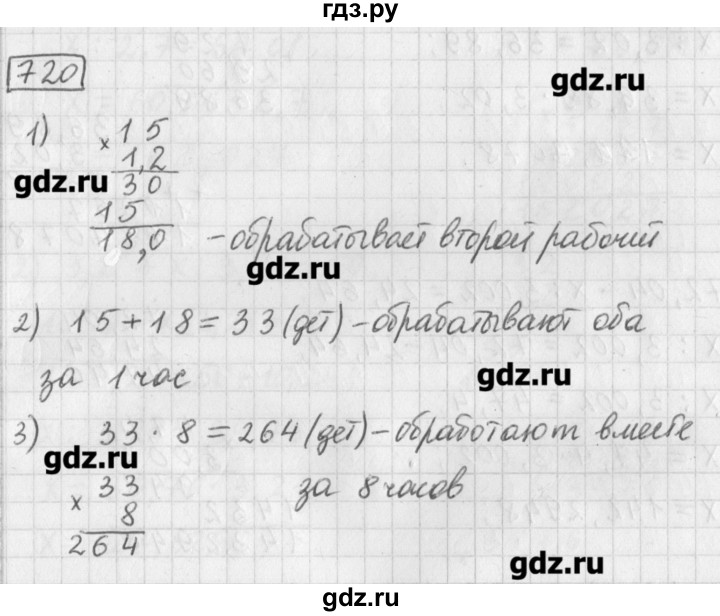 гдз.ру
720
gdz.ru
1) × 15
1,2
gdz.ru
30
15
18,0 - обрабатывает второй рабочий
gdz.ru
2) 15 + 18 = 33 (дет) - обрабатывают оба
за 1 час
gdz.ru
3) 33 · 8 = 264 (дет) - обработают вместе
gdz.ru
× 33
за 8 часов
8
264
gdz.ru
gdz.ru